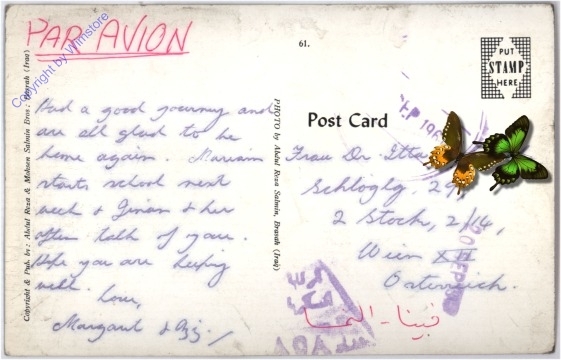 PAR AVION
Copyright by Wimstore
61.
PUT
STAMP
HERE
Post Card
Copyright & Pub. by : Abdul Reza & Mohsen Salmin Bros : Basrah (Iraq)
PHOTO by Abdul Reza Salmin, Basrah (Iraq)
Had a good journey and
are all glad to be
home again. Mariam
starts school next
week & Jinan & her
often talk of you.
Hope you are keeping
well.
Love,
Margaret & Aziz.
Frau Dr. Itta
Schloglg. 29
2 Stock, 2/14,
Wien XII
Österreich.
فيينا - النمسا